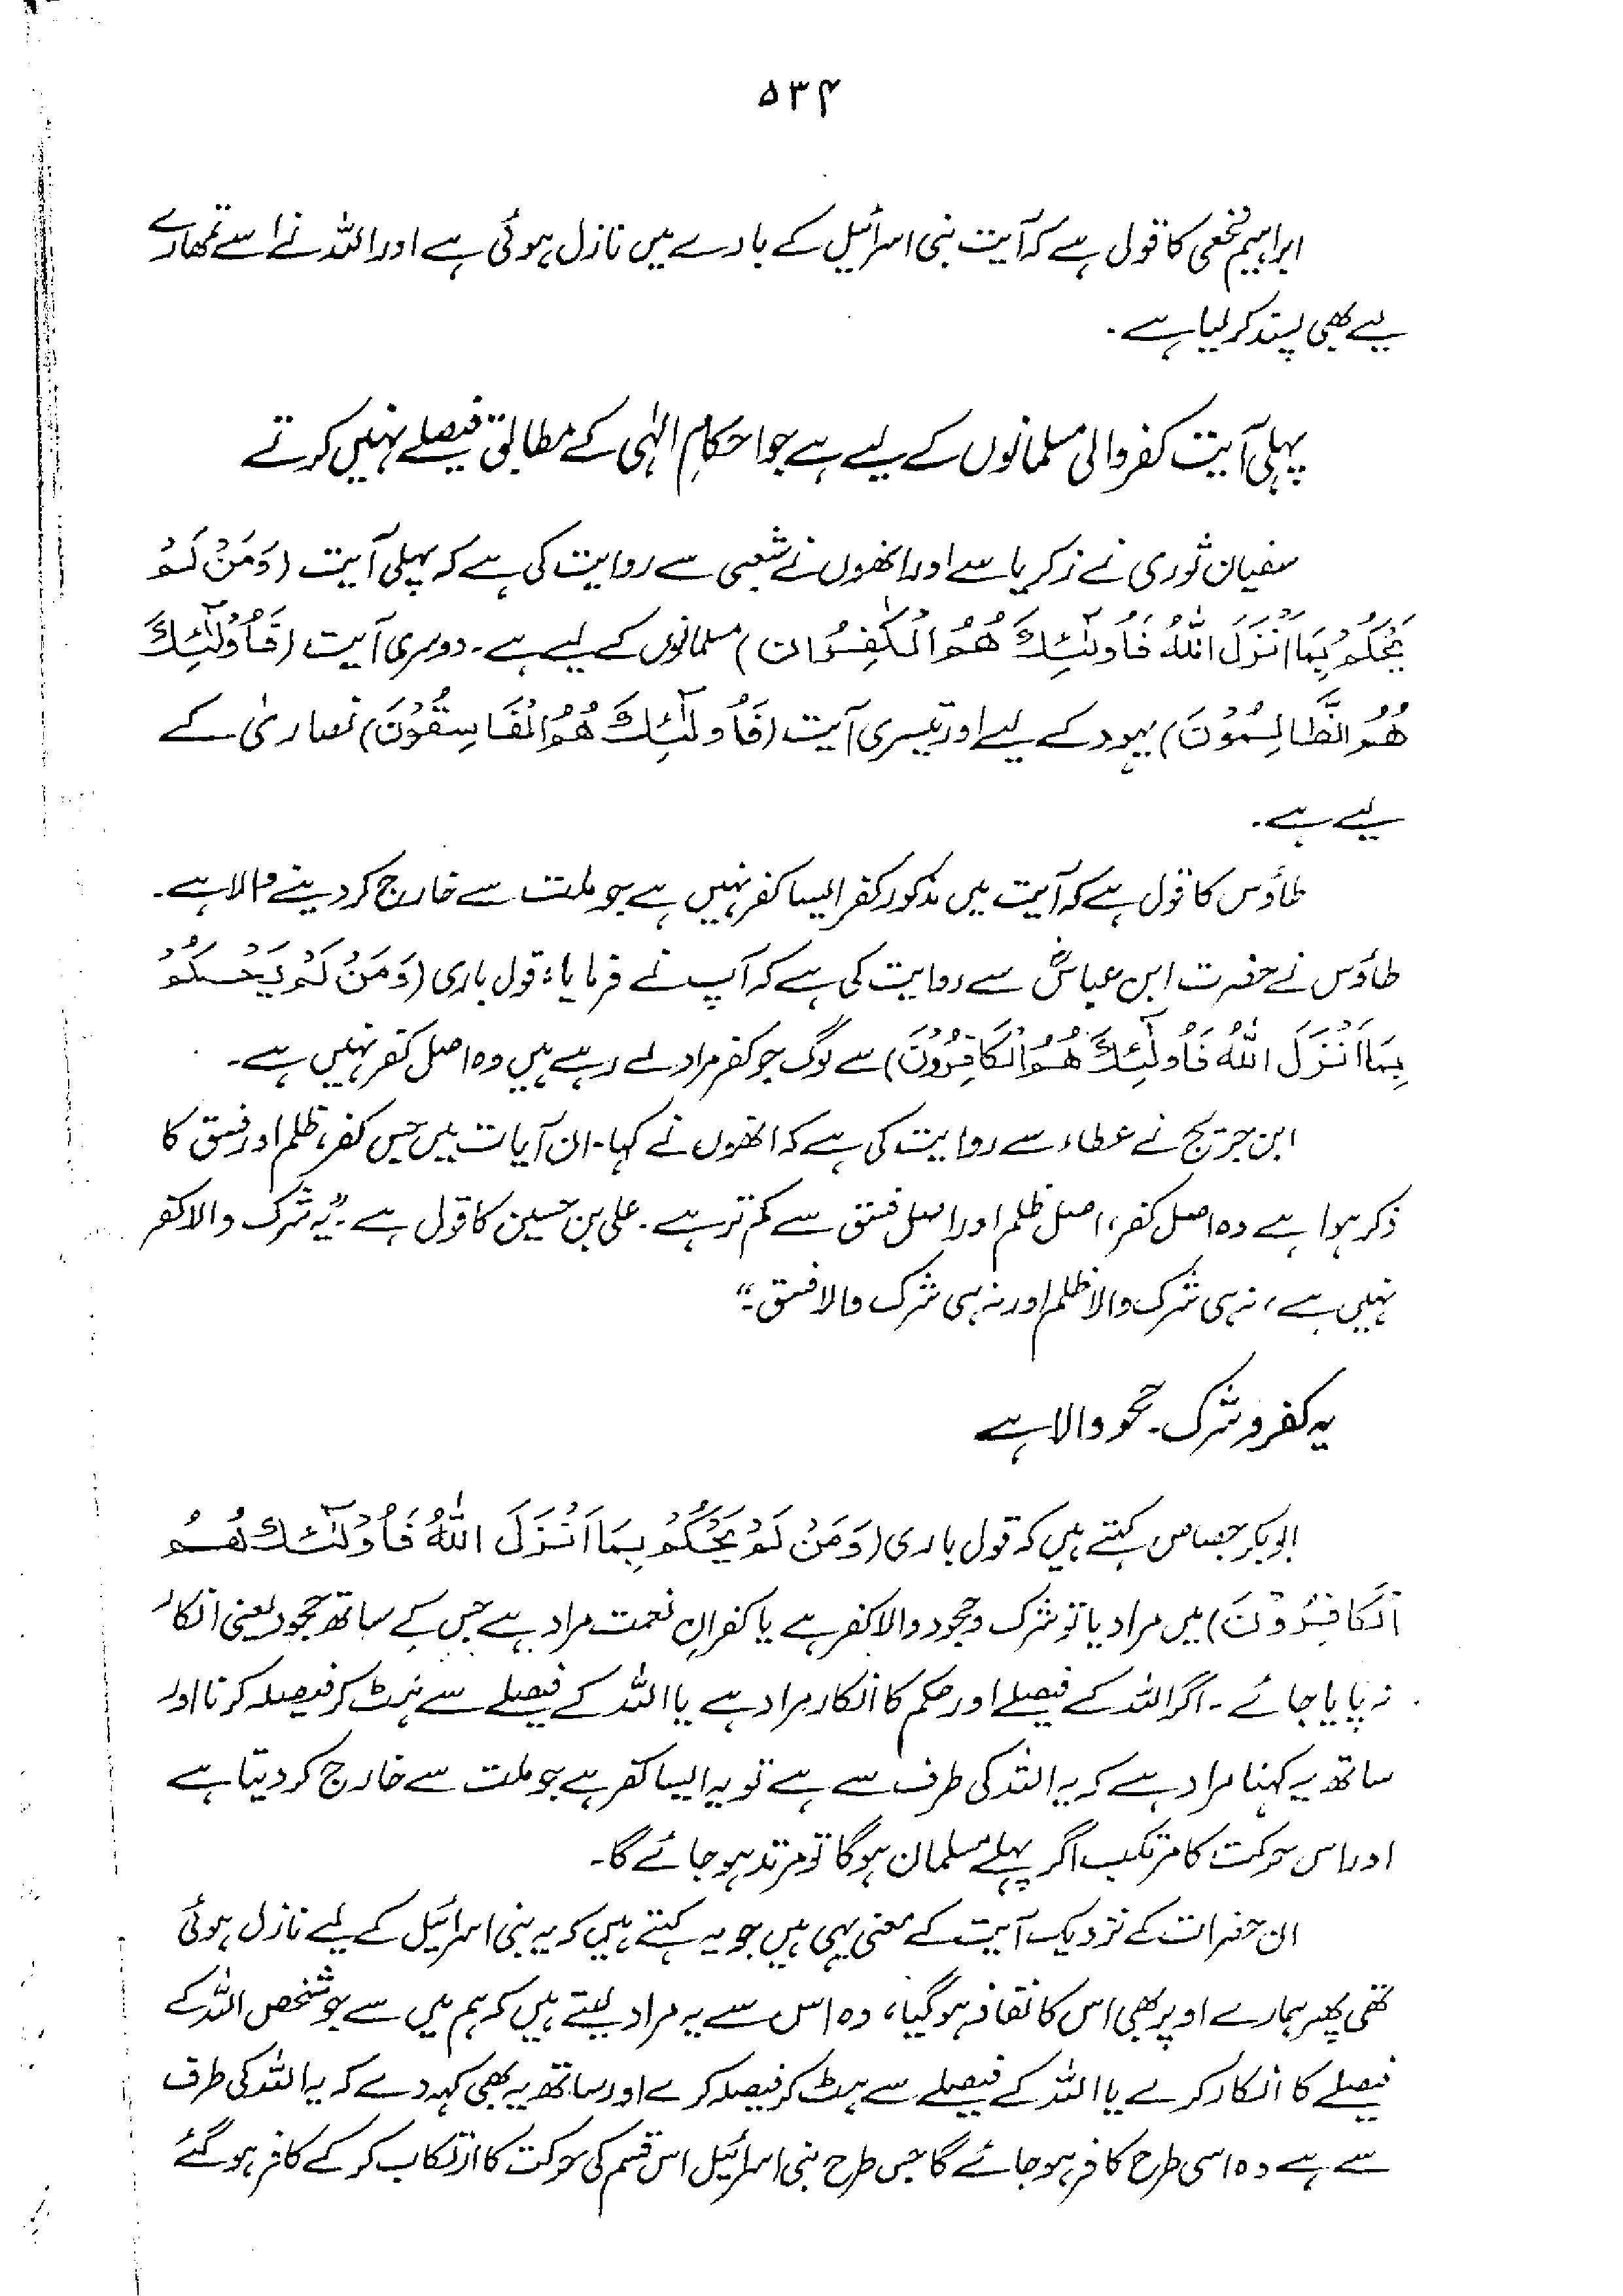 ۵۳۴
ابراہیم نخعی کا قول ہے کہ آیت بنی اسرائیل کے بارے میں نازل ہوئی ہے اور اللہ نے اسے تمھارے
لیے بھی پسند کر لیا ہے۔
پہلی آیت کفر والی مسلمانوں کے لیے ہے جو احکامِ الٰہی کے مطابق فیصلے نہیں کرتے
سفیان ثوری نے زکریا سے اور انھوں نے شعبی سے روایت کی ہے کہ پہلی آیت (وَمَنْ لَمْ
يَحْكُمْ بِمَا اَنْزَلَ اللهُ فَاُولٰٓئِكَ هُمُ الْكٰفِرُونَ) مسلمانوں کے لیے ہے۔ دوسری آیت (فَاُولٰٓئِكَ
هُمُ الظَّالِمُوْنَ) یہود کے لیے اور تیسری آیت (فَاُولٰٓئِكَ هُمُ الْفَاسِقُوْنَ) نصاریٰ کے
لیے ہے۔
طاؤس کا قول ہے کہ آیت میں مذکور کفر ایسا کفر نہیں ہے جو ملت سے خارج کر دینے والا ہے۔
طاؤس نے حضرت ابن عباسؓ سے روایت کی ہے کہ آپ نے فرمایا: قول باری (وَمَنْ لَمْ يَحْكُمْ
بِمَا اَنْزَلَ اللهُ فَاُولٰٓئِكَ هُمُ الْكَافِرُوْنَ) سے لوگ جو کفر مراد لے رہے ہیں وہ اصل کفر نہیں ہے۔
ابن جریج نے عطاء سے روایت کی ہے کہ انھوں نے کہا۔ ان آیات میں جس کفر، ظلم اور فسق کا
ذکر ہوا ہے وہ اصل کفر، اصل ظلم اور اصل فسق سے کم تر ہے۔ علی بن حسین کا قول ہے۔ "یہ شرک والا کفر
نہیں ہے، نہ ہی شرک والا ظلم اور نہ ہی شرک والا فسق۔"
یہ کفر و شرک۔ جحود والا ہے
ابوبکر جصاص کہتے ہیں کہ قول باری (وَمَنْ لَمْ يَحْكُمْ بِمَا اَنْزَلَ اللهُ فَاُولٰٓئِكَ هُمُ
الْكَافِرُوْنَ) میں مراد یا تو شرک و جحود والا کفر ہے یا کفرانِ نعمت مراد ہے جس کے ساتھ جحود یعنی انکار
نہ پایا جائے۔ اگر اللہ کے فیصلے اور حکم کا انکار مراد ہے یا اللہ کے فیصلے سے ہٹ کر فیصلہ کرنا اور
ساتھ یہ کہنا مراد ہے کہ یہ اللہ کی طرف سے ہے تو یہ ایسا کفر ہے جو ملت سے خارج کر دیتا ہے
اور اس حرکت کا مرتکب اگر پہلے مسلمان ہوگا تو مرتد ہو جائے گا۔
ان حضرات کے نزدیک آیت کے معنی یہی ہیں جو یہ کہتے ہیں کہ یہ بنی اسرائیل کے لیے نازل ہوئی
تھی پھر ہمارے اوپر بھی اس کا نفاذ ہو گیا، وہ اس سے یہ مراد لیتے ہیں کہ ہم میں سے جو شخص اللہ کے
فیصلے کا انکار کرے یا اللہ کے فیصلے سے ہٹ کر فیصلہ کرے اور ساتھ یہ بھی کہہ دے کہ یہ اللہ کی طرف
سے ہے وہ اسی طرح کافر ہو جائے گا جس طرح بنی اسرائیل اس قسم کی حرکت کا ارتکاب کر کے کافر ہو گئے